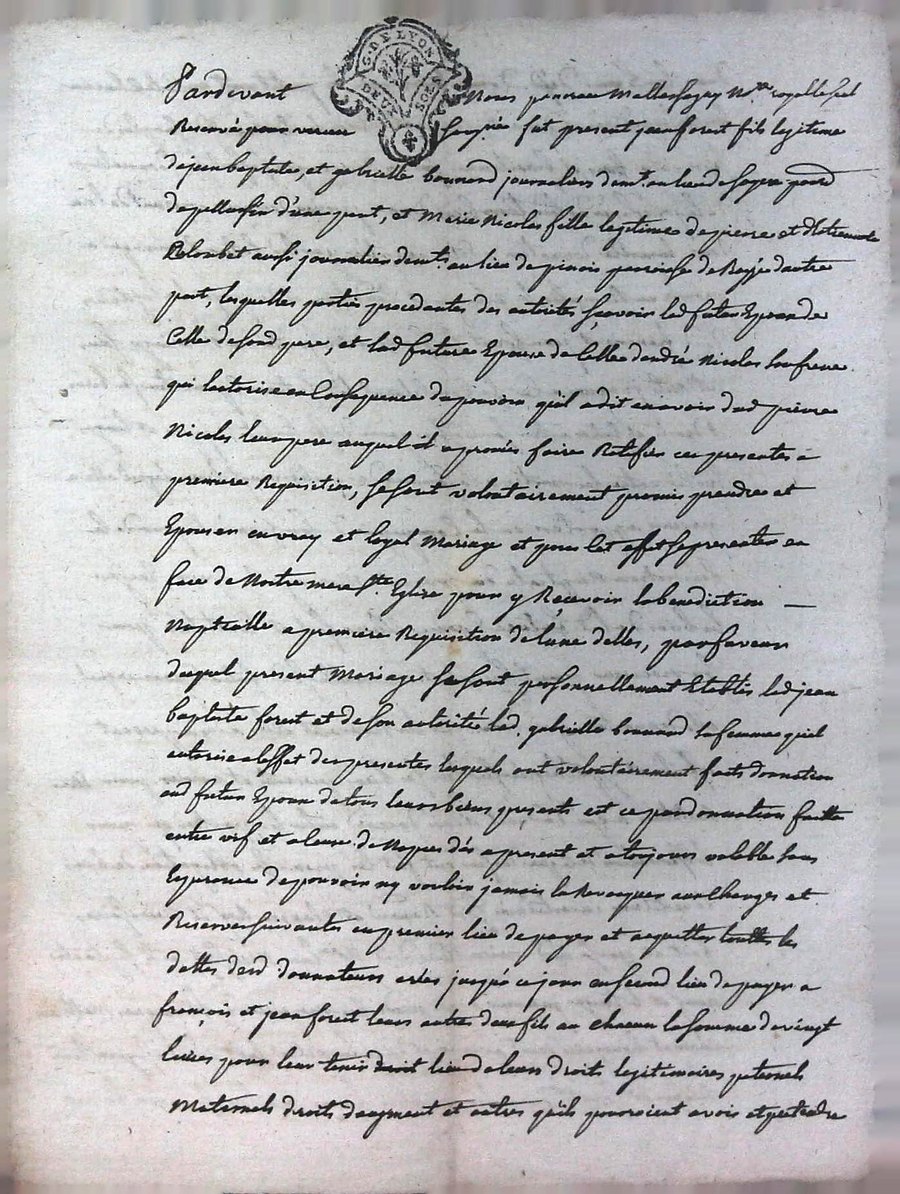 G. DE LYON
DEUX SOLS
Pardevant Nous notre royalle
Reservé pour verneu soussigné fut present jean forest fils legitime
dejean baptiste, et gabrielle bonnard journaliers demt. au lieu de
depellusin d'une part, et Marie Nicolas fille legitime de pierre et
Colombet aussi journaliers demt. au lieu de paroisse de d'autre
part, lesquelles parties procedantes des autorités sçavoir led futur Epoux de
Celle desond pere, et lad future Epouse de Celle dandré Nicolas son frere
qui lautorise en Consequence du pouvoir qu'il adit en avoir dud pierre
Nicolas leur pere auquel il a promis faire Ratifier ces presentes a
premiere Requisition, se sont volontairement promis prendre et
Epouser en vray et loyal Mariage et pour Cet effet se presenter en
face de Nostre mere Ste. Eglise pour y Reçevoir la benediction —
Nuptialle a premiere Requisition de lune delles, par faveur
duquel present Mariage se sont personnellement Etablis led jean
baptiste forest et de son autorité lad. gabrielle bonnard sa femme quil
autorise a leffet des presentes lesquels ont volontairement faits donnation
aud futur Epoux de tous leurs biens presents est ce par donnation faitte
entre vif et a Cause de Nopces dés apresent et atoujours valable sans
Esperance de pouvoir ny vouloir jamais la Revoquer aux Charges et
Reserves suivantes en premier lieu de payer et acquitter touttes les
dettes desd donnateurs jusqu'à ce jour en second lieu de payer a
françois et jean forest leurs autres deux fils a chacun la somme de vingt
livres pour leur tenir droit lieu de leurs droits legitimaires paternels
Maternels droits daugment et autres qu'ils pourroient avoir et pretendre